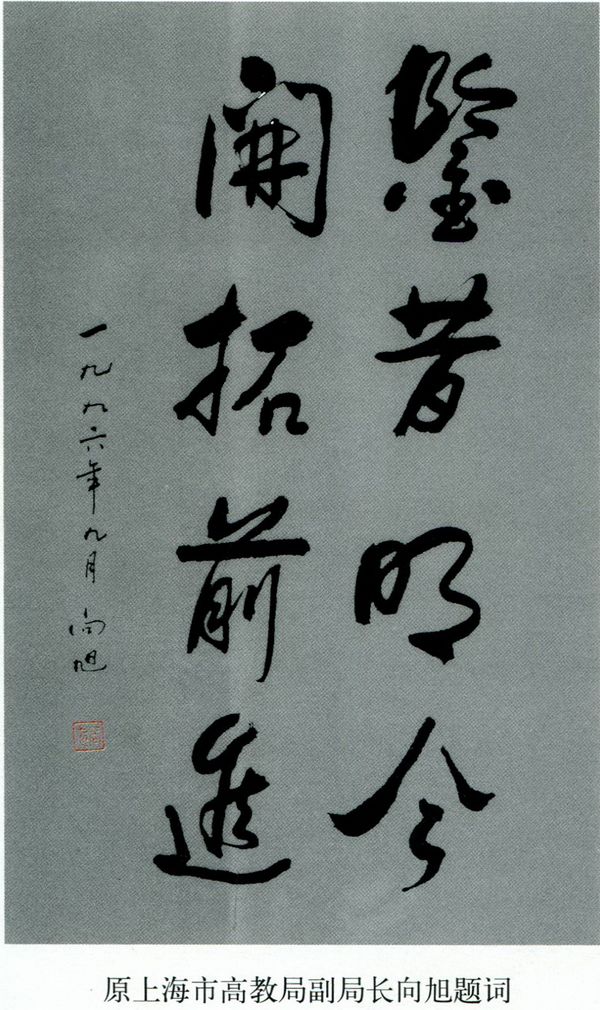 鑒昔明今
開拓前進
一九九六年九月 向旭
原上海市高教局副局长向旭题词